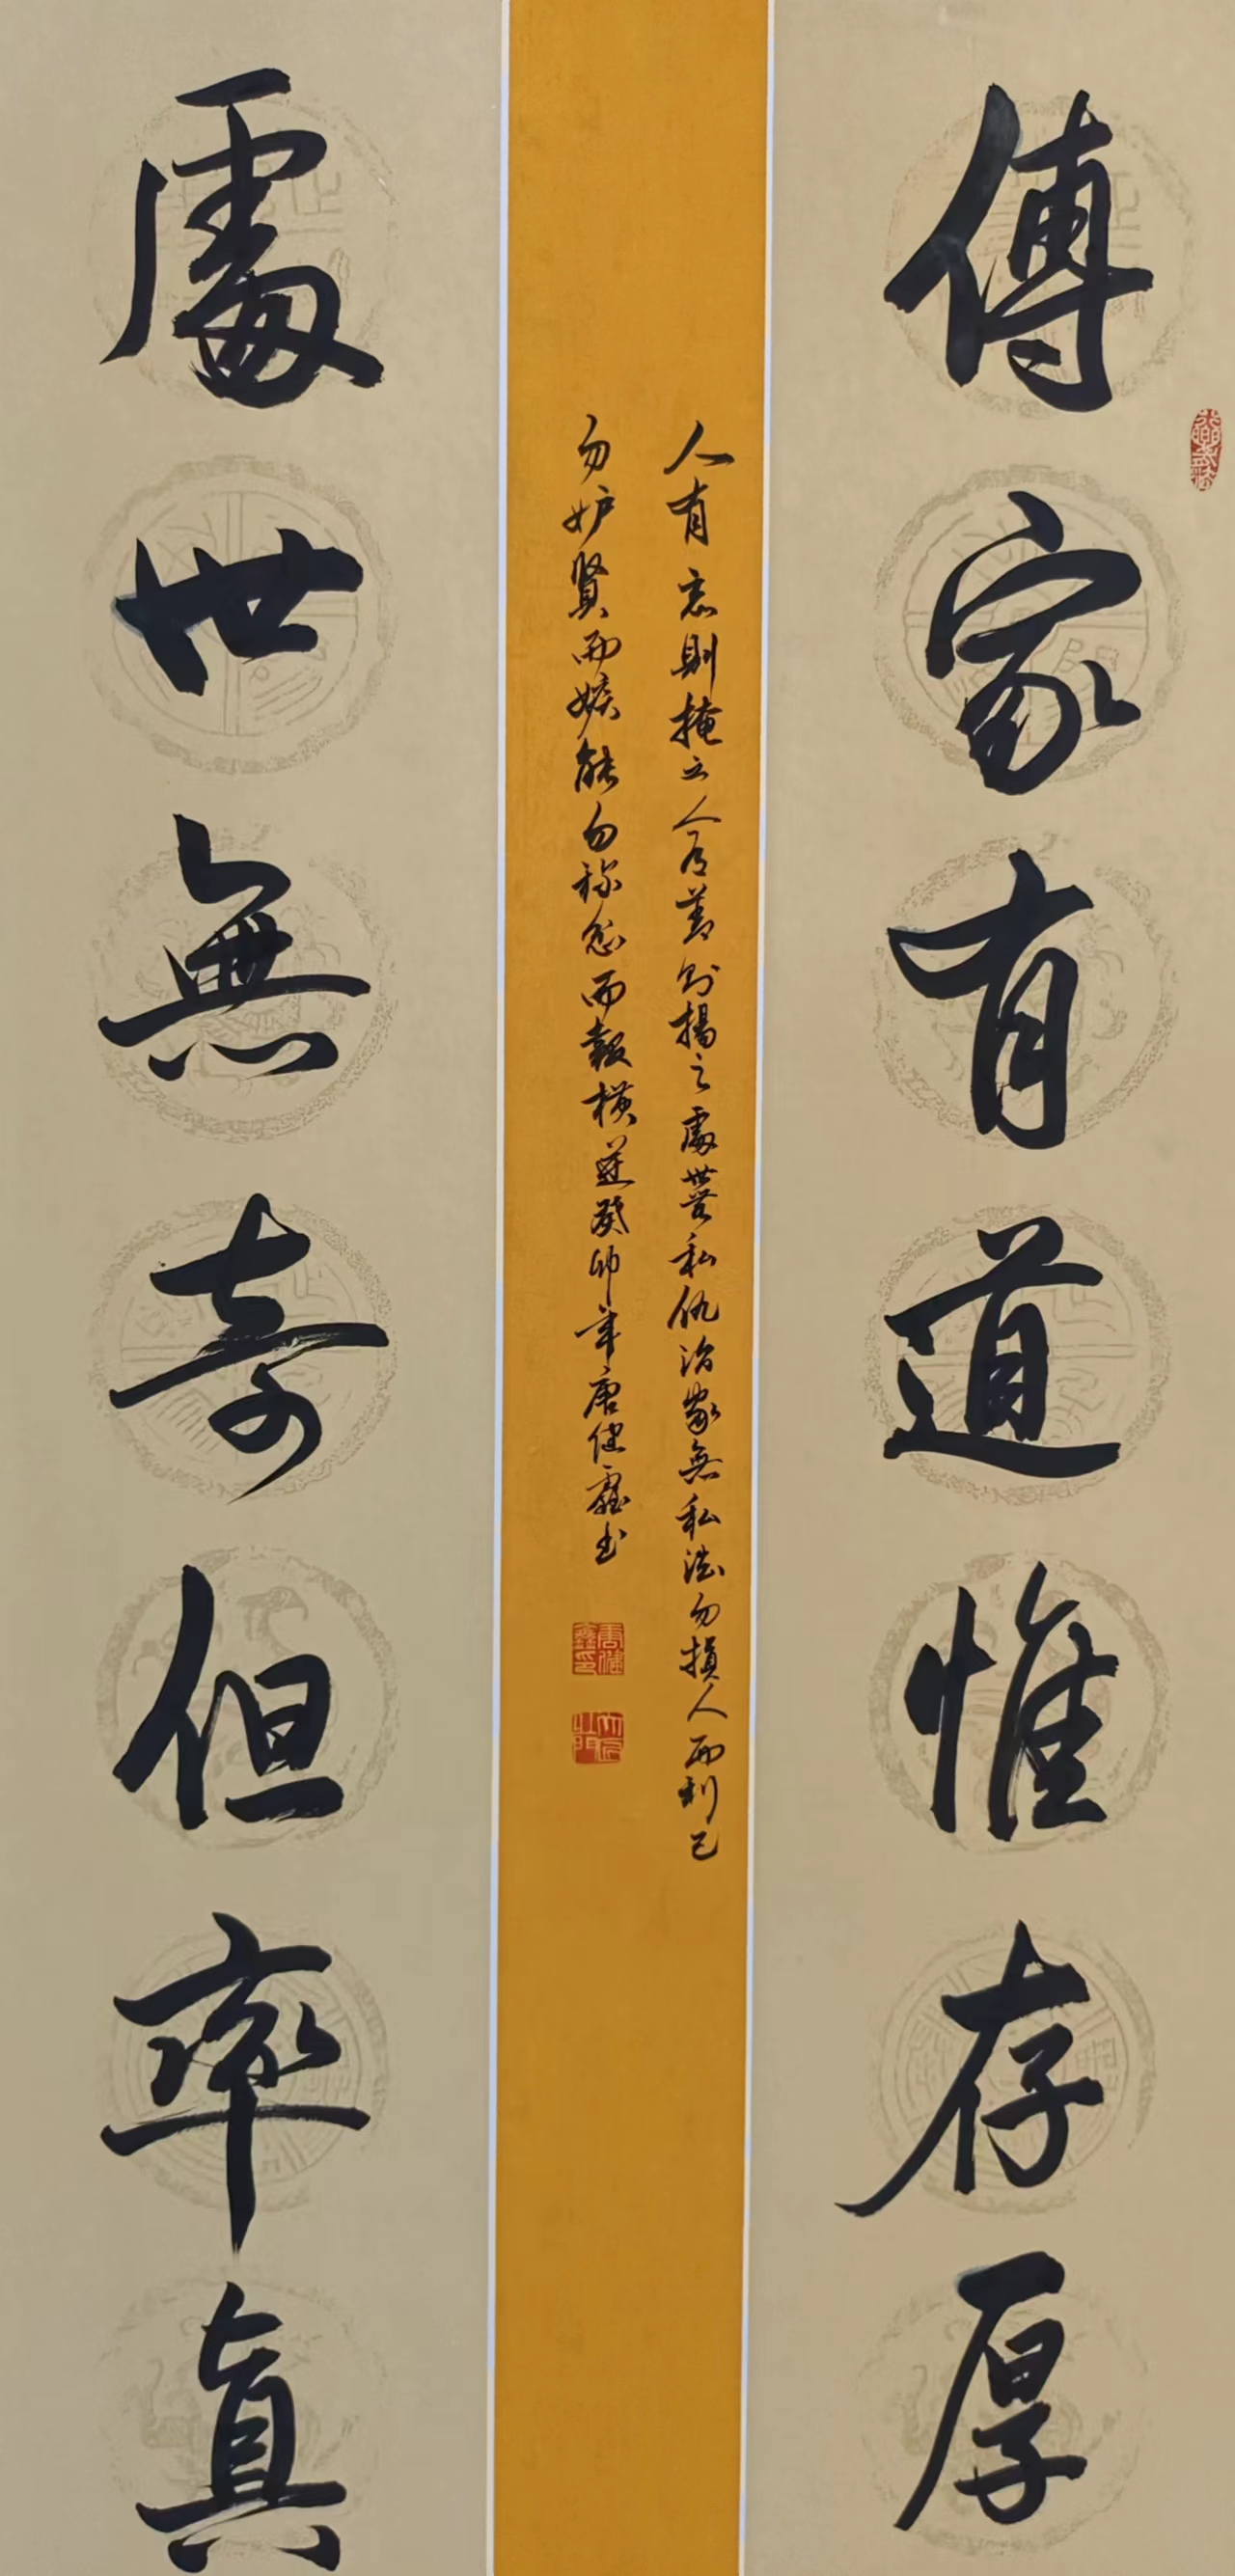 傳家有道惟存厚
人有惡則掩之人有善則揚之處世無私仇治家無私法勿損人而利己
勿妒賢而嫉能勿稱忿而報橫逆癸卯年唐健書
處世無奇但率真